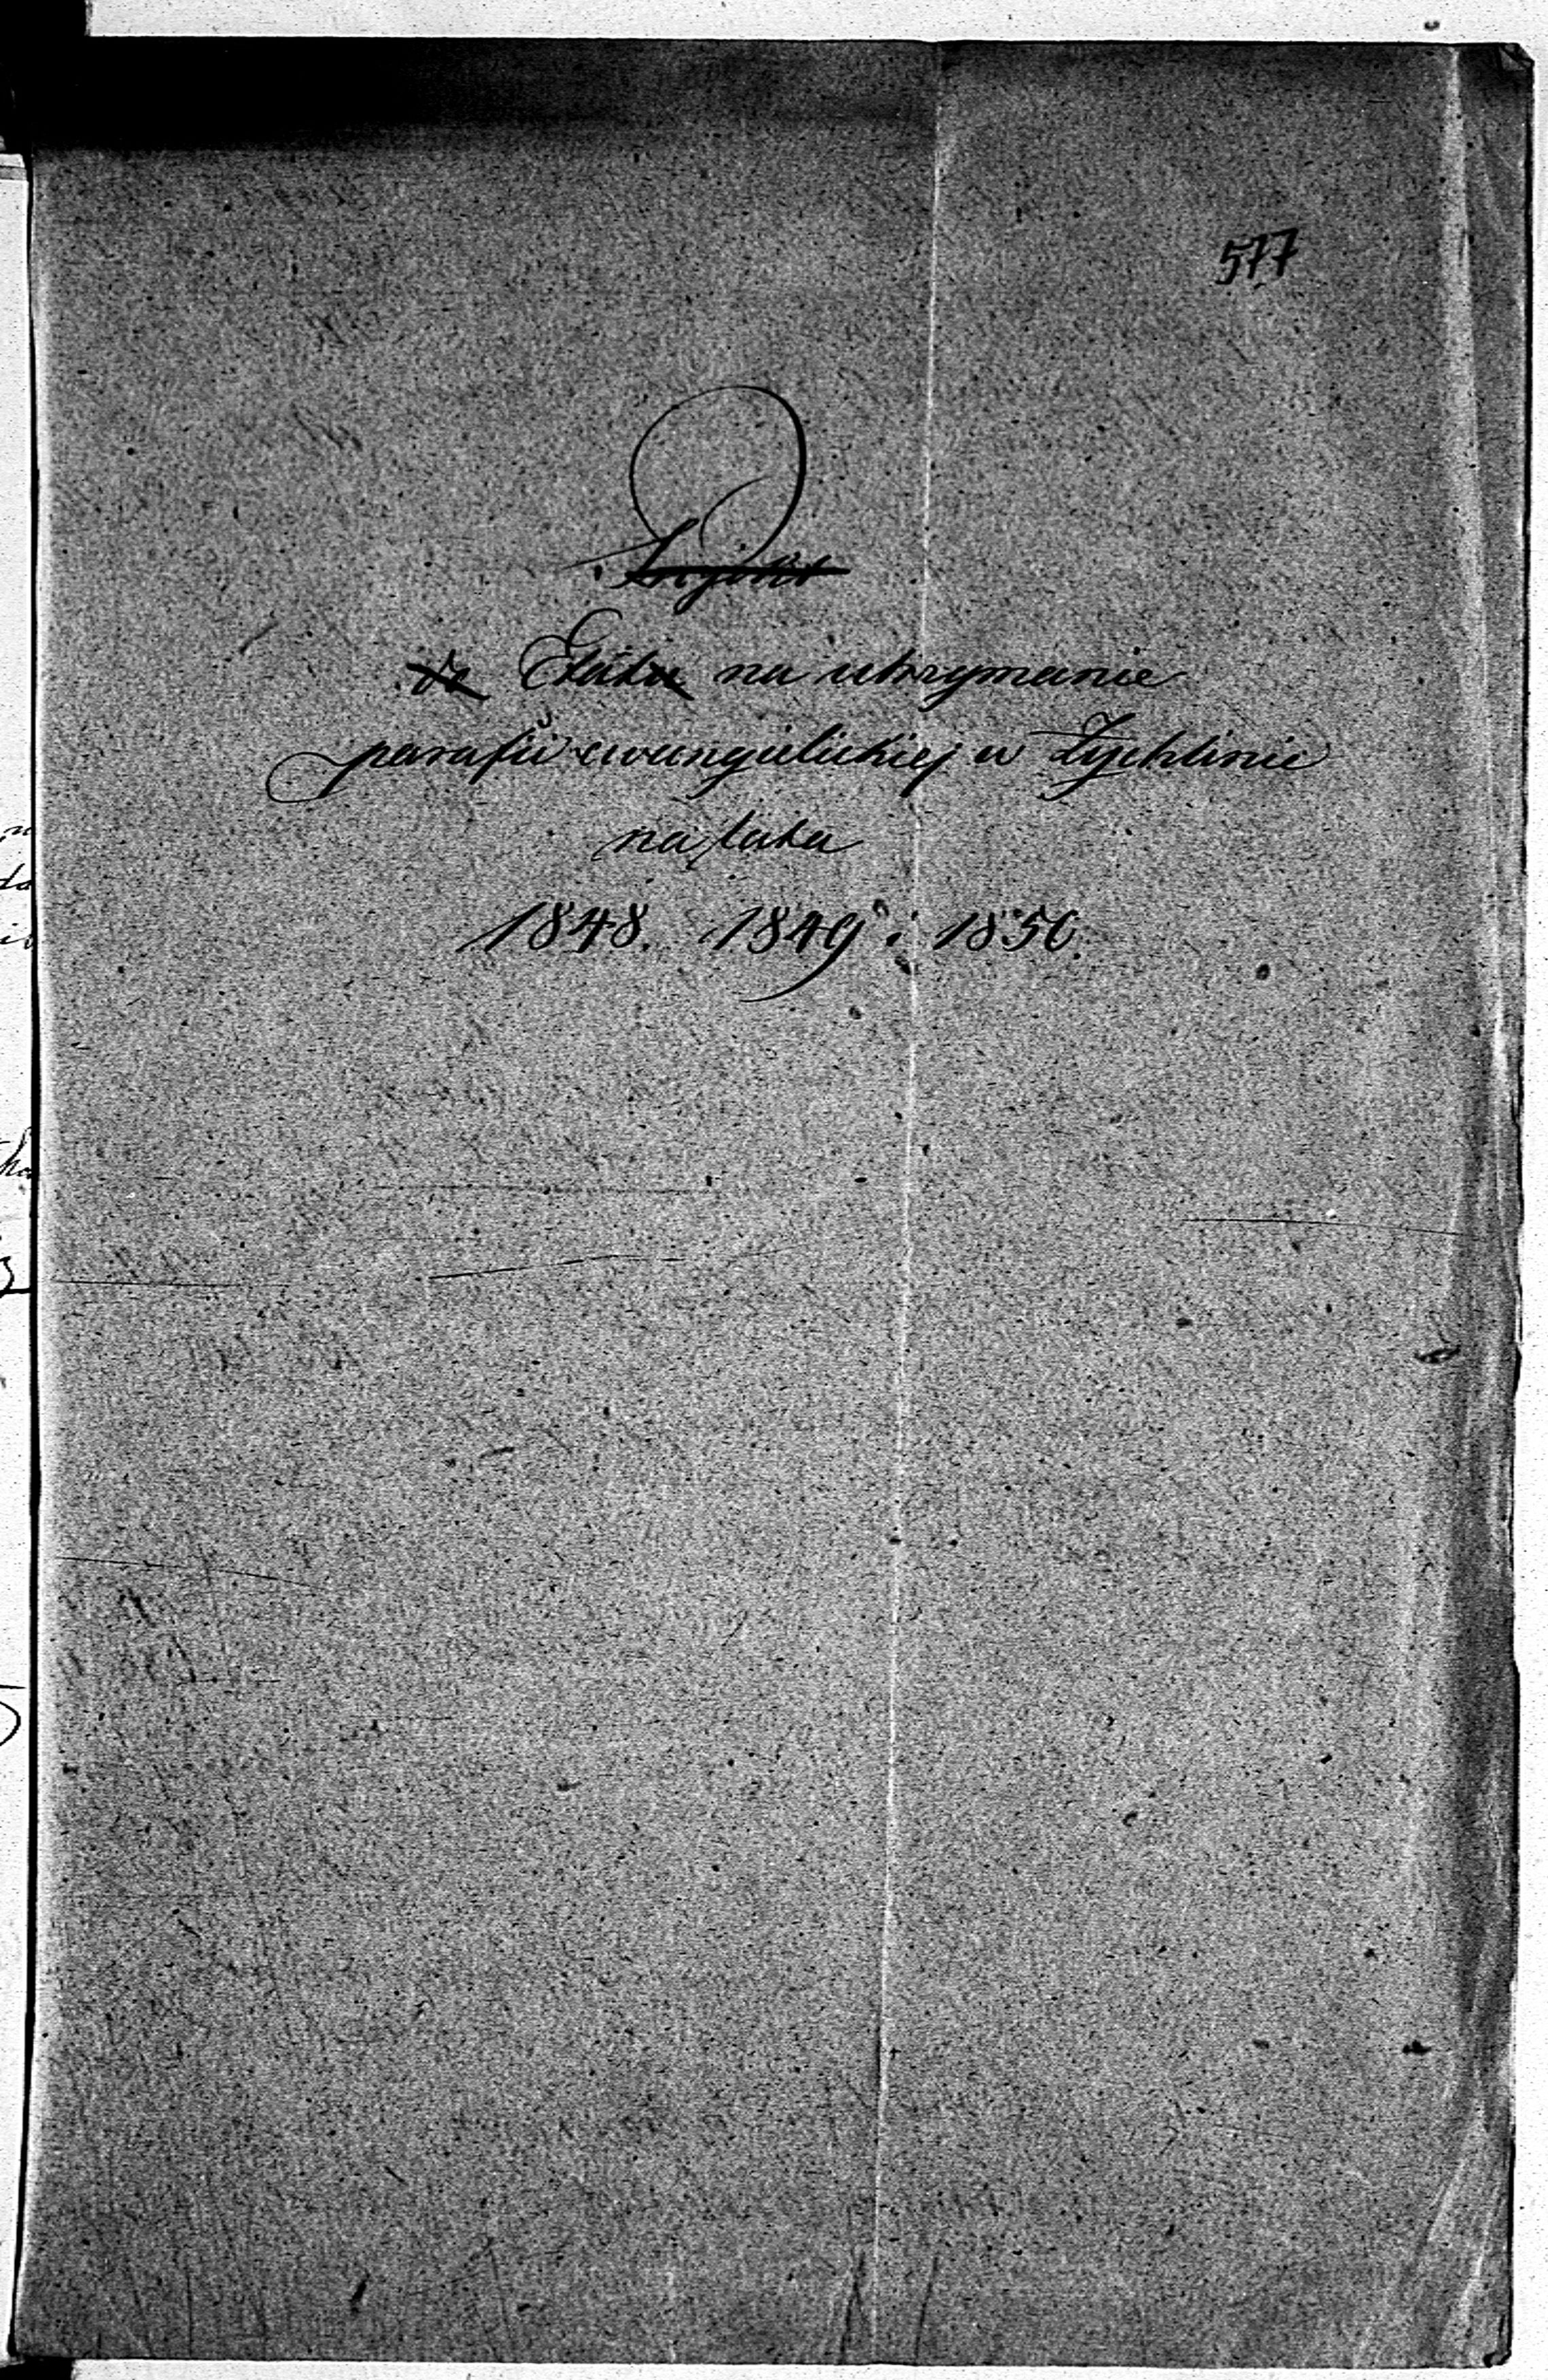 577
Projekt
do Etatu na utrzymanie
parafii ewangielickiej w Żychlinie
na lata
1848. 1849 i 1850.